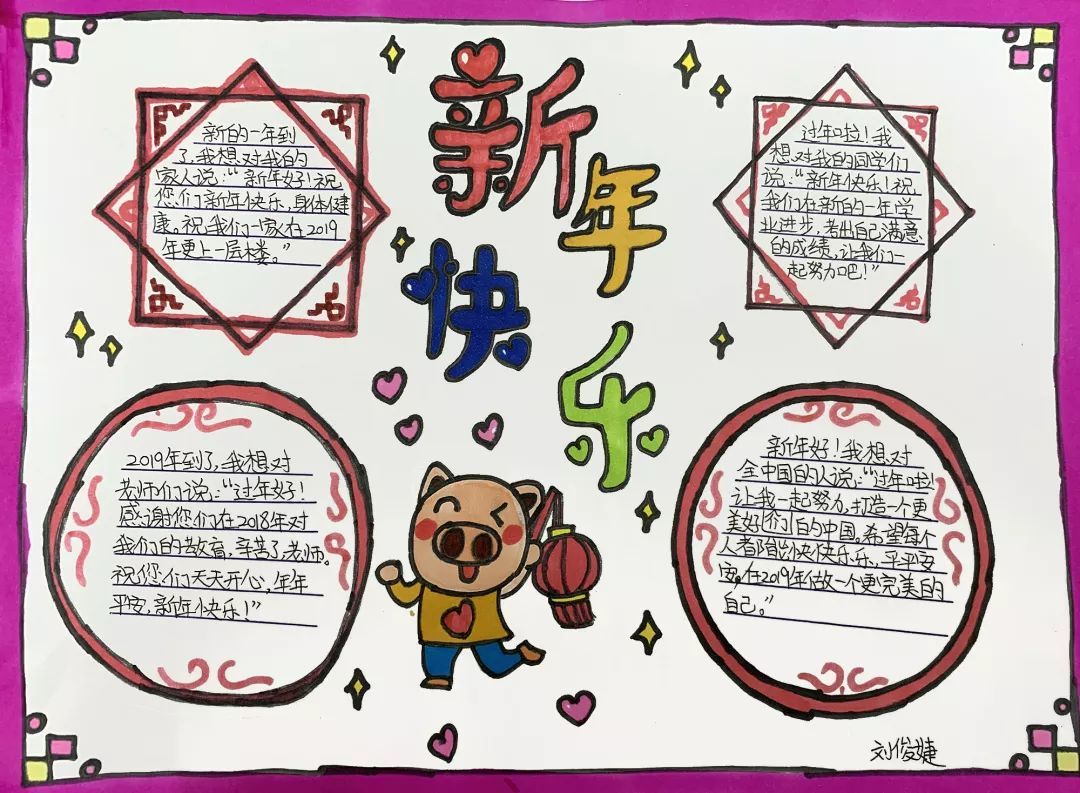 新年快乐
新的一年到
了,我想对我的
家人说:“新年好!祝
您们新年快乐,身体健
康。祝我们一家在2019
年更上一层楼。”
过年啦!我
想对我的同学们
说:“新年快乐!祝
我们在新的一年学
业进步,考出自己满意
的成绩,让我们一
起努力吧!”
2019年到了,我想对
老师们说:“过年好!
感谢您们在2018年对
我们的教育,辛苦了老师。
祝您们天天开心,年年
平安,新年快乐!”
新年好!我想对
全中国的人说:“过年啦!
让我一起努力,打造一个更
美好们的中国,希望每个
人都快快乐乐,平平安
安。在2019年做一个更完美的
自己。”
刘俊婕